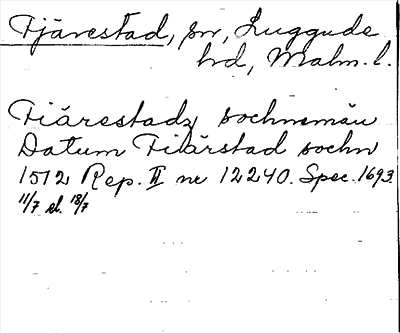 Fjärestad, sn, Luggude
hd, Malm. l.
Fiärestadz sochnemän
Datum Fiärstad sochn
1512 Rep. II nr 12240. Spec. 1693.
11/7 el. 18/7